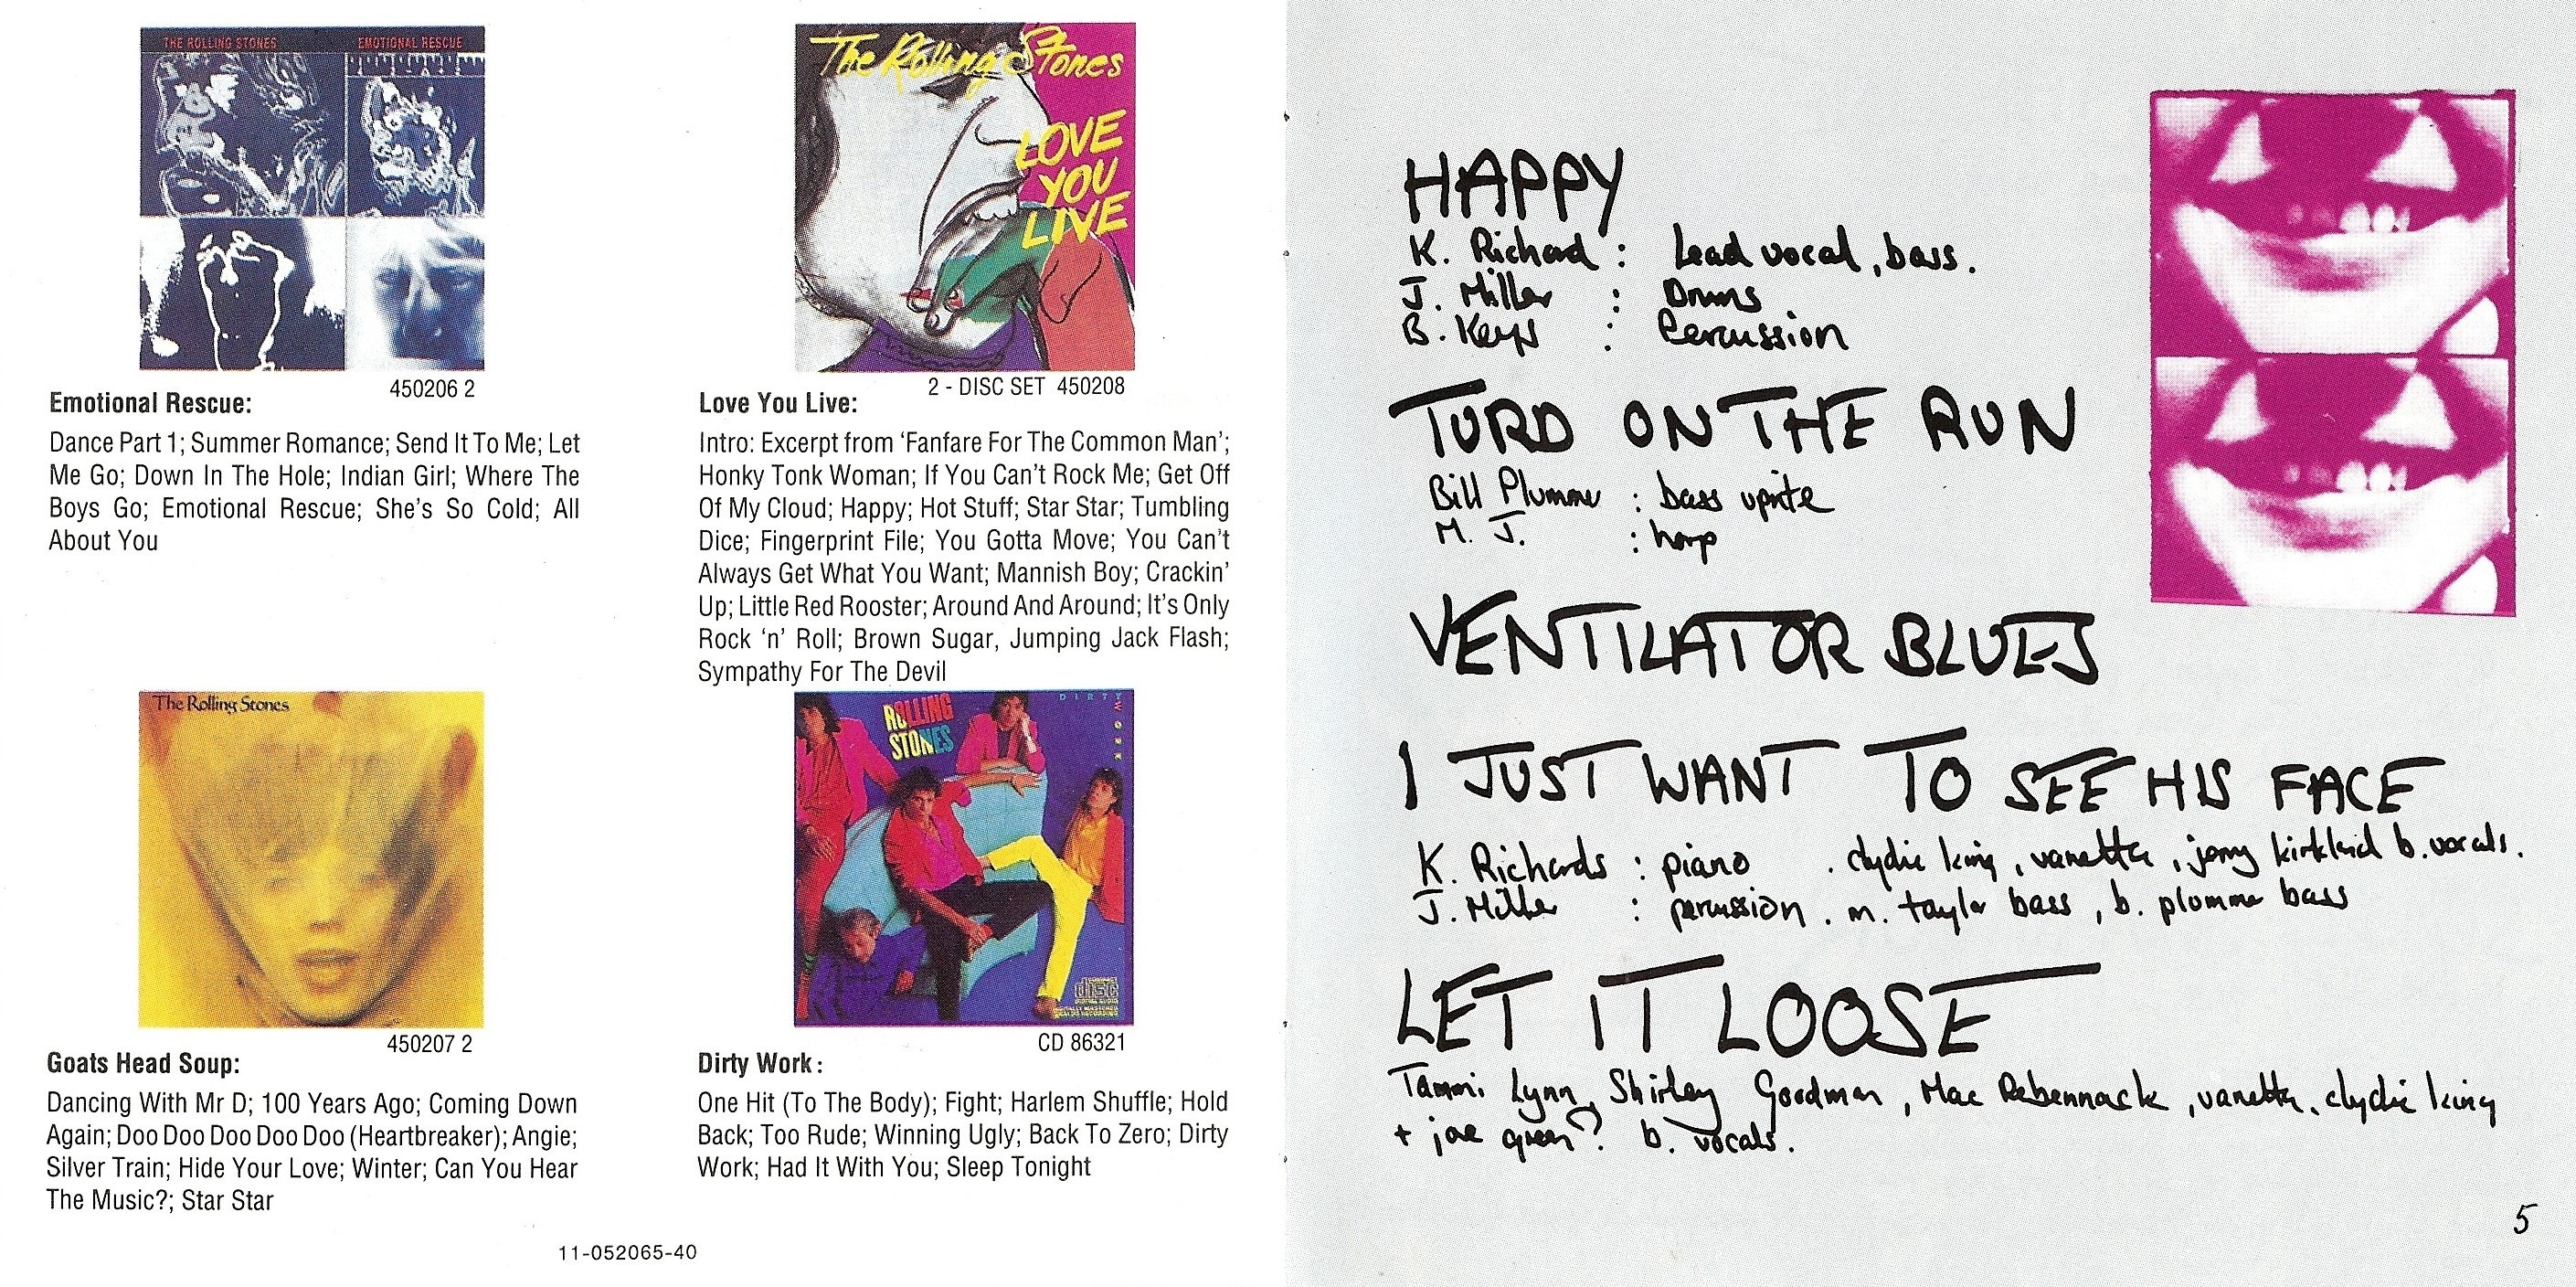 THE ROLLING STONES EMOTIONAL RESCUE
450206 2
Emotional Rescue:
Dance Part 1; Summer Romance; Send It To Me; Let
Me Go; Down In The Hole; Indian Girl; Where The
Boys Go; Emotional Rescue; She's So Cold; All
About You
The Rolling Stones
LOVE
YOU
LIVE
2 - DISC SET 450208
Love You Live:
Intro: Excerpt from ‘Fanfare For The Common Man’;
Honky Tonk Woman; If You Can't Rock Me; Get Off
Of My Cloud; Happy; Hot Stuff; Star Star; Tumbling
Dice; Fingerprint File; You Gotta Move; You Can't
Always Get What You Want; Mannish Boy; Crackin'
Up; Little Red Rooster; Around And Around; It's Only
Rock ‘n’ Roll; Brown Sugar, Jumping Jack Flash;
Sympathy For The Devil
The Rolling Stones
450207 2
Goats Head Soup:
Dancing With Mr D; 100 Years Ago; Coming Down
Again; Doo Doo Doo Doo Doo (Heartbreaker); Angie;
Silver Train; Hide Your Love; Winter; Can You Hear
The Music?; Star Star
DIRTY WORK
ROLLING
STONES
COMPACT
disc
DIGITAL AUDIO
CD 86321
Dirty Work:
One Hit (To The Body); Fight; Harlem Shuffle; Hold
Back; Too Rude; Winning Ugly; Back To Zero; Dirty
Work; Had It With You; Sleep Tonight
11-052065-40
HAPPY
K. Richard : Lead vocal, bass.
J. Miller : Drums
B. Keys : Percussion
TURD ON THE RUN
Bill Plummer : bass uprite
M. J. : harp
VENTILATOR BLUES
I JUST WANT TO SEE HIS FACE
K. Richards : piano . clydie king, vanetta, jerry kirkland b. vocals.
J. Miller : percussion . m. taylor bass, b. plummer bass
LET IT LOOSE
Tammi Lynn, Shirley Goodman, Mac Rebennack, vanetta, clydie king
+ joe green? b. vocals.
5